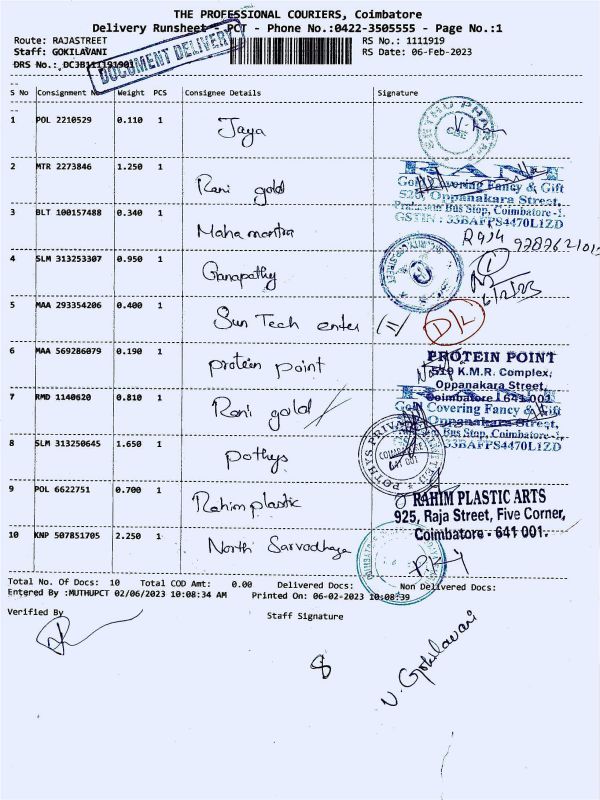 THE PROFESSIONAL COURIERS, Coimbatore
Delivery Runsheet - PCT - Phone No.:0422-3505555 - Page No.:1
Route: RAJASTREET RS No.: 1111919
Staff: GOKILAVANI RS Date: 06-Feb-2023
DRS No.: DC3B111191901
DOCUMENT DELIVERY
S No Consignment No Weight PCS Consignee Details Signature
1 POL 2210529 0.110 1 Jaya
2 MTR 2273846 1.250 1 Rani gold
RANI
Gold Covering Fancy & Gift
528, Oppanakara Street,
Bus Stop, Coimbatore -1.
GSTIN : 33BAFPS4470L1ZD
3 BLT 100157488 0.340 1 Maha mantra
4 SLM 313253307 0.950 1 Ganapathy
6/2/23
5 MAA 293354206 0.400 1 Sun Tech enter (=) D/L
6 MAA 569286079 0.190 1 protein point
PROTEIN POINT
519 K.M.R. Complex,
Oppanakara Street,
Coimbatore 641 001
7 RMD 1140620 0.810 1 Rani gold
Gold Covering Fancy & Gift
Oppanakara Street,
Bus Stop, Coimbatore-1.
33BAFPS4470L1ZD
8 SLM 313250645 1.650 1 Pothys
POTHYS PRIVATE LIMITED
COIMBATORE
641 001
9 POL 6622751 0.700 1 Rahim plastic
RAHIM PLASTIC ARTS
925, Raja Street, Five Corner,
Coimbatore - 641 001.
10 KNP 507851705 2.250 1 North Sarvodhaya
Total No. Of Docs: 10 Total COD Amt: 0.00 Delivered Docs: Non Delivered Docs:
Entered By :MUTHUPCT 02/06/2023 10:08:34 AM Printed On: 06-02-2023 10:08:39
Verified By Staff Signature
8
V. Gokilavani